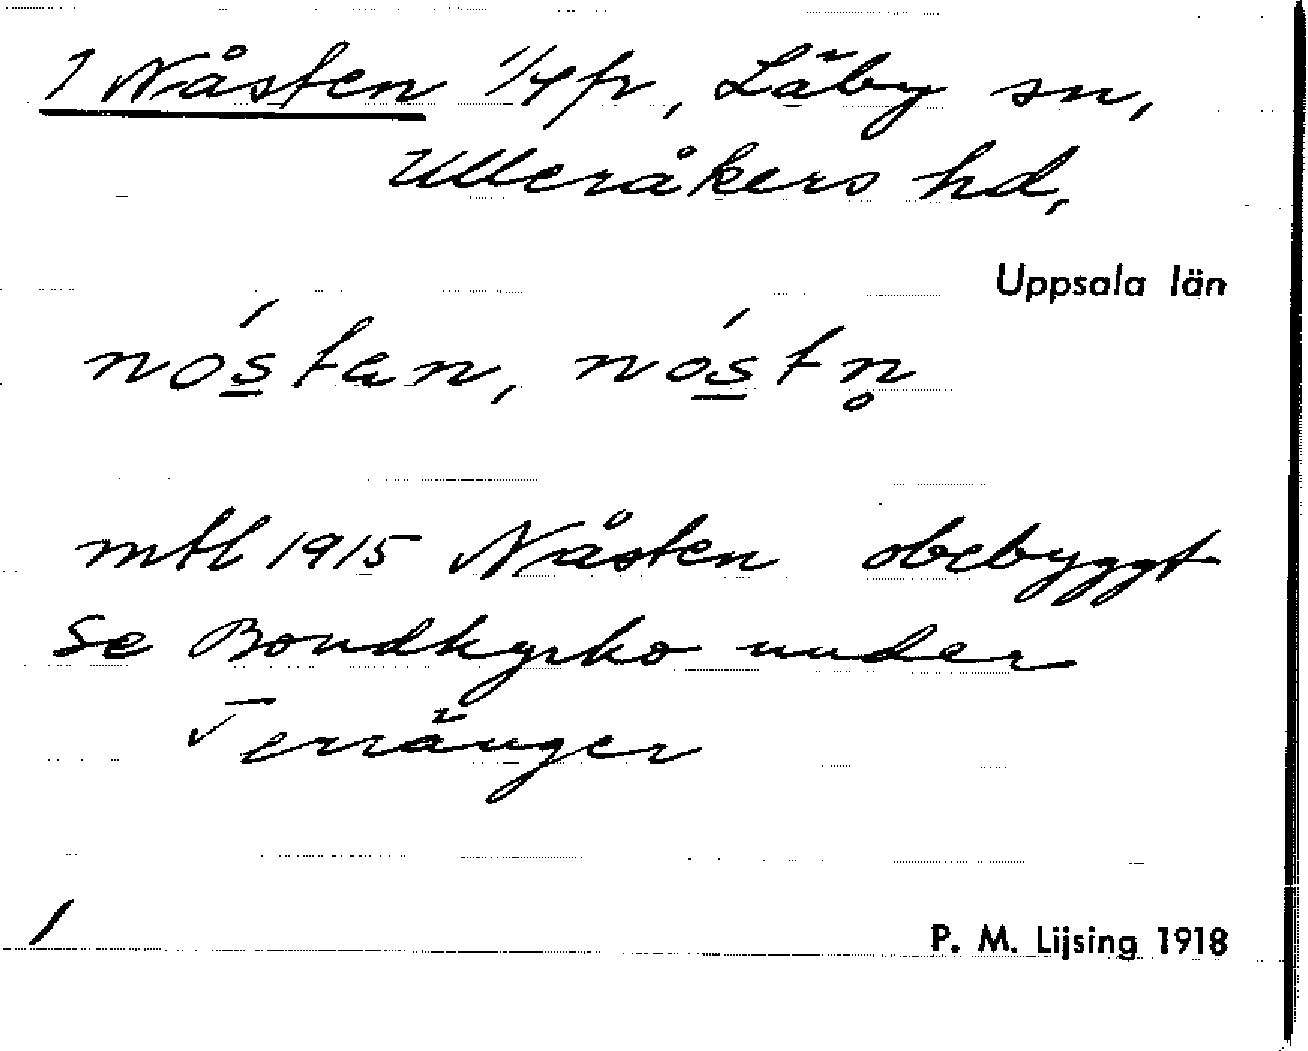 1 Nåsten 1/4 fr, Läby sn,
Ulleråkers hd,
Uppsala län
nós̲tan, nós̲tn̥
mtl 1915 Nåsten obebyggt
se Bondkyrko under
Terränger
/
P. M. Lijsing 1918